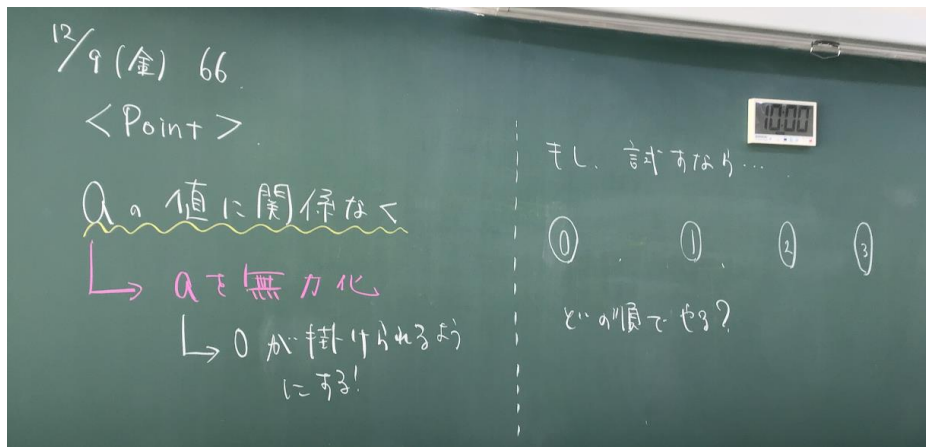 12/9(金) 66
<Point>
aの値に関係なく
↳ aを無力化
↳ 0が掛けられるよう
にする!
10:00
もし、試すなら…
⓪ ① ② ③
どの順でやる?